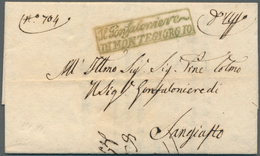 (N.° 704
d'Uffo
Il Gonfaloniere
DI MONTEGIORGIO
All' Illmo Sig. Sig. Pne Colmo
Il Sig. Gonfaloniere di
Sangiusto